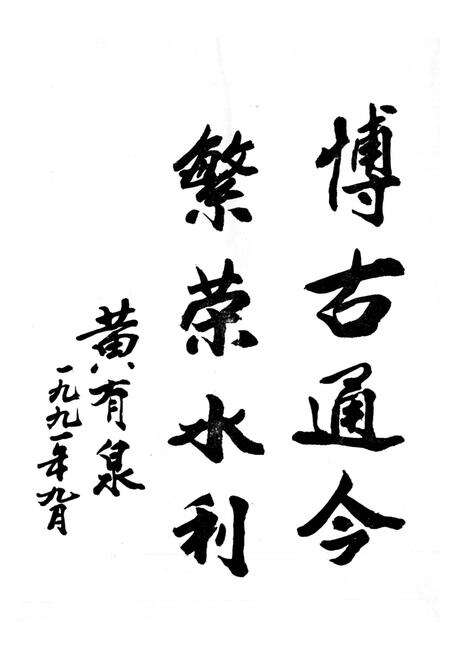 博古通今
繁荣水利
黄有泉
一九九一年九月